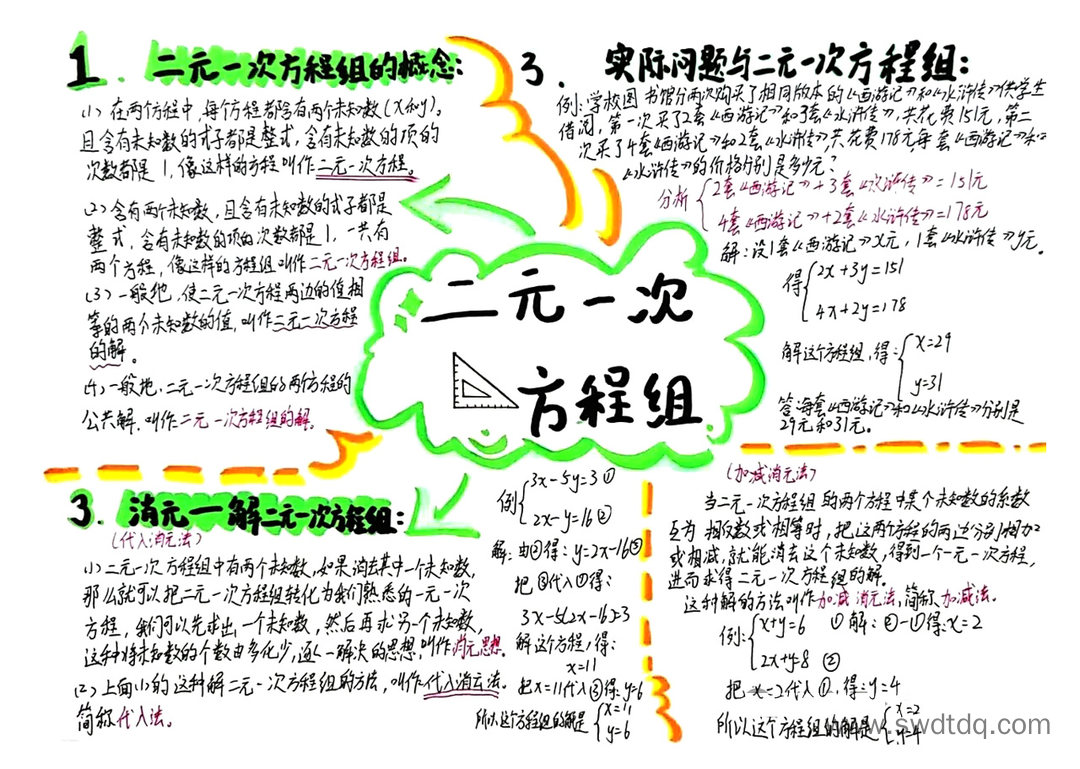 1. 二元一次方程组的概念:
(1) 在两个方程中,每个方程都含有两个未知数(x和y),
且含有未知数的式子都是整式,含有未知数的项的
次数都是1,像这样的方程叫作二元一次方程。
(2) 含有两个未知数,且含有未知数的式子都是
整式,含有未知数的项的次数都是1,一共有
两个方程,像这样的方程组叫作二元一次方程组。
(3) 一般地,使二元一次方程两边的值相
等的两个未知数的值,叫作二元一次方程
的解。
(4) 一般地,二元一次方程组的两个方程的
公共解,叫作二元一次方程组的解。
二元一次
方程组
3. 实际问题与二元一次方程组:
例:学校图书馆分两次购买了相同版本的《西游记》和《水浒传》供学生
借阅,第一次买了2套《西游记》和3套《水浒传》,共花费151元,第二
次买了4套《西游记》和2套《水浒传》共花费178元每套《西游记》和
《水浒传》的价格分别是多少元?
分析 2套《西游记》+3套《水浒传》=151元
4套《西游记》+2套《水浒传》=178元
解:设1套《西游记》x元,1套《水浒传》y元。
得 2x+3y=151
4x+2y=178
解这个方程组,得: x=29
y=31
答:每套《西游记》和《水浒传》分别是
29元和31元。
3. 消元一解二元一次方程组:
(代入消元法)
(1) 二元一次方程组中有两个未知数,如果消去其中一个未知数,
那么就可以把二元一次方程组转化为我们熟悉的一元一次
方程,我们可以先求出一个未知数,然后再求另一个未知数,
这种将未知数的个数由多化少,逐一解决的思想,叫作消元思想。
(2) 上面(1)的这种解二元一次方程组的方法,叫作代入消元法。
简称代入法。
例 3x-5y=3 ①
2x-y=16 ②
解:由②得:y=2x-16③
把③代入①得:
3x-5(2x-16)=3
解这个方程,得:
x=11
把x=11代入③得:y=6
所以这个方程组的解是 x=11
y=6
(加减消元法)
当二元一次方程组的两个方程中某个未知数的系数
互为相反数或相等时,把这两个方程的两边分别相加
或相减,就能消去这个未知数,得到一个一元一次方程,
进而求得二元一次方程组的解。
这种解的方法叫作加减消元法,简称加减法。
例: x+y=6 ① 解:②-①得:x=2
2x+y=8 ②
把x=2代入①,得:y=4
所以这个方程组的解是 x=2
y=4
www.swdtdq.com